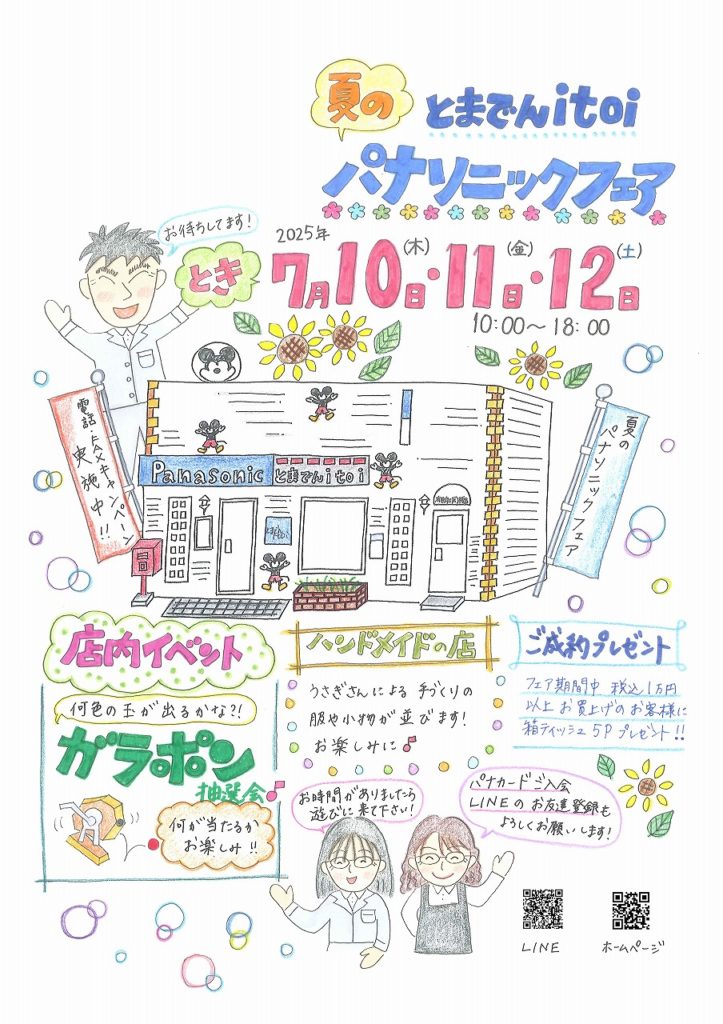 夏の
とまでんitoi
パナソニックフェア
お待ちしてます!
とき
2025年
7月10日(木)・11日(金)・12日(土)
10:00〜18:00
電話・FAXキャンペーン
実施中!!
夏の
パナソニックフェア
Panasonic とまでんitoi
店内イベント
何色の玉が出るかな?!
ガラポン
抽選会♪
何が当たるか
お楽しみ!!
ハンドメイドの店
うさぎさんによる 手づくりの
服や小物が並びます!
お楽しみに♪
ご成約プレゼント
フェア期間中 税込1万円
以上お買上げのお客様に
箱ティッシュ5Pプレゼント!!
お時間がありましたら
遊びに来て下さい!
パナカードご入会
LINEのお友達登録も
よろしくお願いします!
LINE
ホームページ